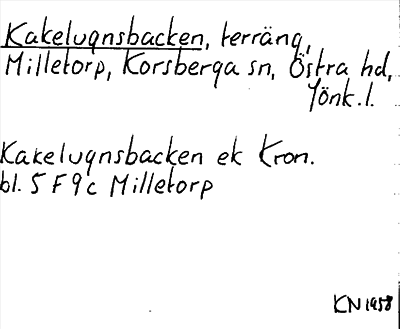 Kakelugnsbacken, terräng,
Milletorp, Korsberga sn, Östra hd,
Jönk.l.
Kakelugnsbacken ek Kron.
bl. 5 F 9 c Milletorp
KN 1958